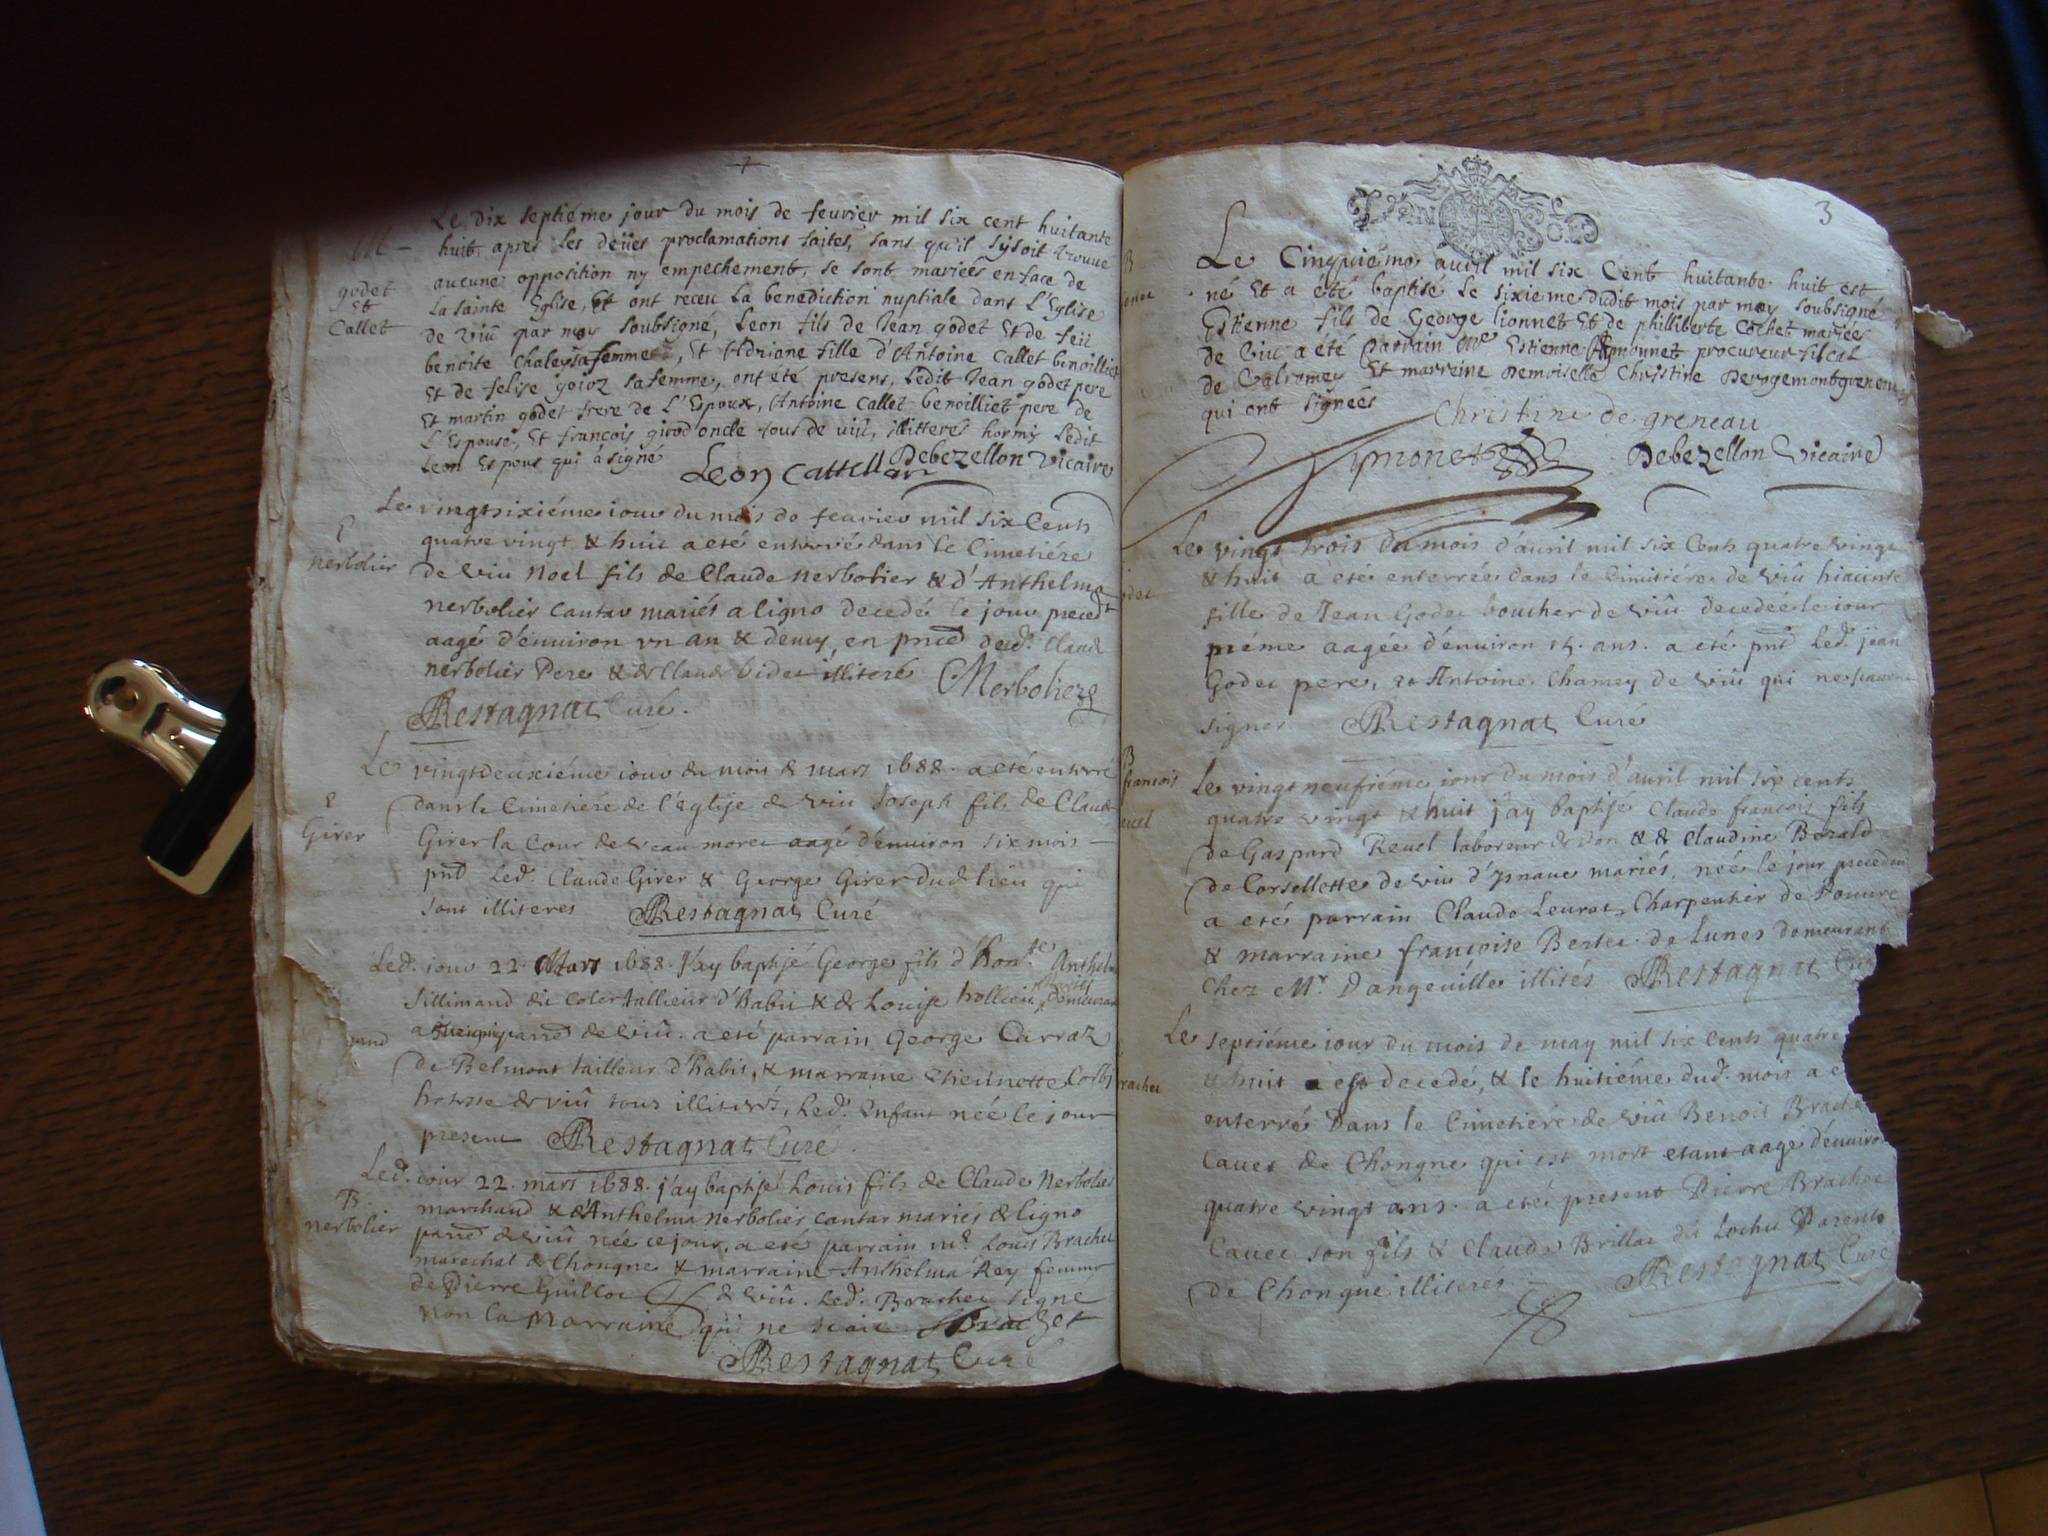 Le dix septiéme jour du mois de feurier mil six cent huitante
huit apres les deües proclamations faites, sans qu'il sy soit trouué
aucune opposition ny empechement, se sont mariées en face de
la sainte Eglise, Et ont receu la benediction nuptiale dans l'Eglise
de viû par moy soubsigné, Leon fils de Jean godet Et de feii
benoite chaley sa femme, Et Adriane fille d'Antoine Callet benoilliet
Et de felise goioz sa femme, ont été presens, Ledit Jean godet pere
Et martin godet frere de l'Espoux, Antoine Callet benoilliet pere de
L'Espouse, Et françois girod oncle tous de viû, illitteres hormis Ledit
Leon Espous qui à signé
Debezellon vicaire
godet
Et
Callet
Le vingtsixiéme iour du mois de feurier mil six Cents
quatre vingt & huit a eté enterré dans le Cimetiére
de viu Noel fils de Claude nerbolier & d'Anthelma
nerbolier cantar mariés a ligno decedé le jour preced^t
aagé d'enuiron vn an & demy, en pnce dud. Claude
nerbolier Pere & de Claude bidet illiteré
Nerbolier
Restagnat Curé.
E
nerbolier
Le vingtdeuxiéme iour du mois de mars 1688. a eté enterré
dans le Cimetiére de l'Eglise de viu Joseph fils de Claude
Girer la Cour de veau moret aagé d'enuiron six mois
pnt Led. Claude Girer & George Girer dud lieu qui
sont illiteres Restagnat Curé
E
Girer
Led. iour 22. Mars 1688. J'ay baptisé George fils d'hon.te Anthelm
Sillimand dit coler tallieur d'habit & de Louise hollieu demeurant
a parre de viû. a eté parrain George Carraz
de Belmont tailleur d'habit, & marraine Etiennette
hotesse de viû tous illiterés, Led. Enfant née le jour
present Restagnat Curé
Led. jour 22. mars 1688. j'ay baptisé Louis fils de Claude Nerbolier
marchand & d'Anthelma nerbolier cantar mariés de ligno
parre de viû née ce jour, a eté parrain m.e Louis Brachet
marechal de Chongne & marraine Anthelma Rey femme
de Pierre Guillot de viû. Led. Brachet signe
non la Marraine qui ne scait Brachet
Restagnat Curé
B
nerbolier
3
Le Cinquiéme auril mil six Cent huitante huit est
né Et a été baptise le sixieme dudit mois par moy soubsigné
Estienne fils de George lionnet Et de philliberte cochet mariées
de viu a été parrain M.e Estienne Symonnet procureur fiscal
de Valromey Et marreine Demoiselle Christine Derogemont greneau
qui ont signées
Christine de greneau
Symonet Debezellon vicaire
Le vingt trois du mois d'auril mil six Cents quatre vingt
& huit a eté enterrée dans le Cimitiére de viû hiacinte
fille de Jean Godet boucher de viû decedée le iour
méme aagée d'enuiron 14. ans. a eté pnt Led. jean
Godet pere, et Antoine Chamey de viû qui ne scauent
signer Restagnat Curé
B
francois
Le vingt neufiéme iour du mois d'auril mil six cents
quatre vingt & huit j'ay baptisé Claude francois fils
de Gaspard Reuel laboreur de don & de Claudine Berald
de Corsellette de viu d'Isnaue mariés, née le jour precedent
a eté parrain Claude Leurat Charpentier de Pouure
& marraine francoise Bertet de Lunes demeurant
chez Mr. Dangeuille illités Restagnat Cu
Le septiéme iour du mois de may mil six Cents quatre
& huit est decedé, & le huitiéme dud. mois a e
enterré dans le Cimetiére de viû Benoit Brache
Cauet de Chongne qui est mort etant aagé d'enuiro
quatre vingt ans. a eté present Pierre Brachet
Cauet son fils & Claude Brillat dit Lochu Parents
de Chongne illiterés Restagnat Curé